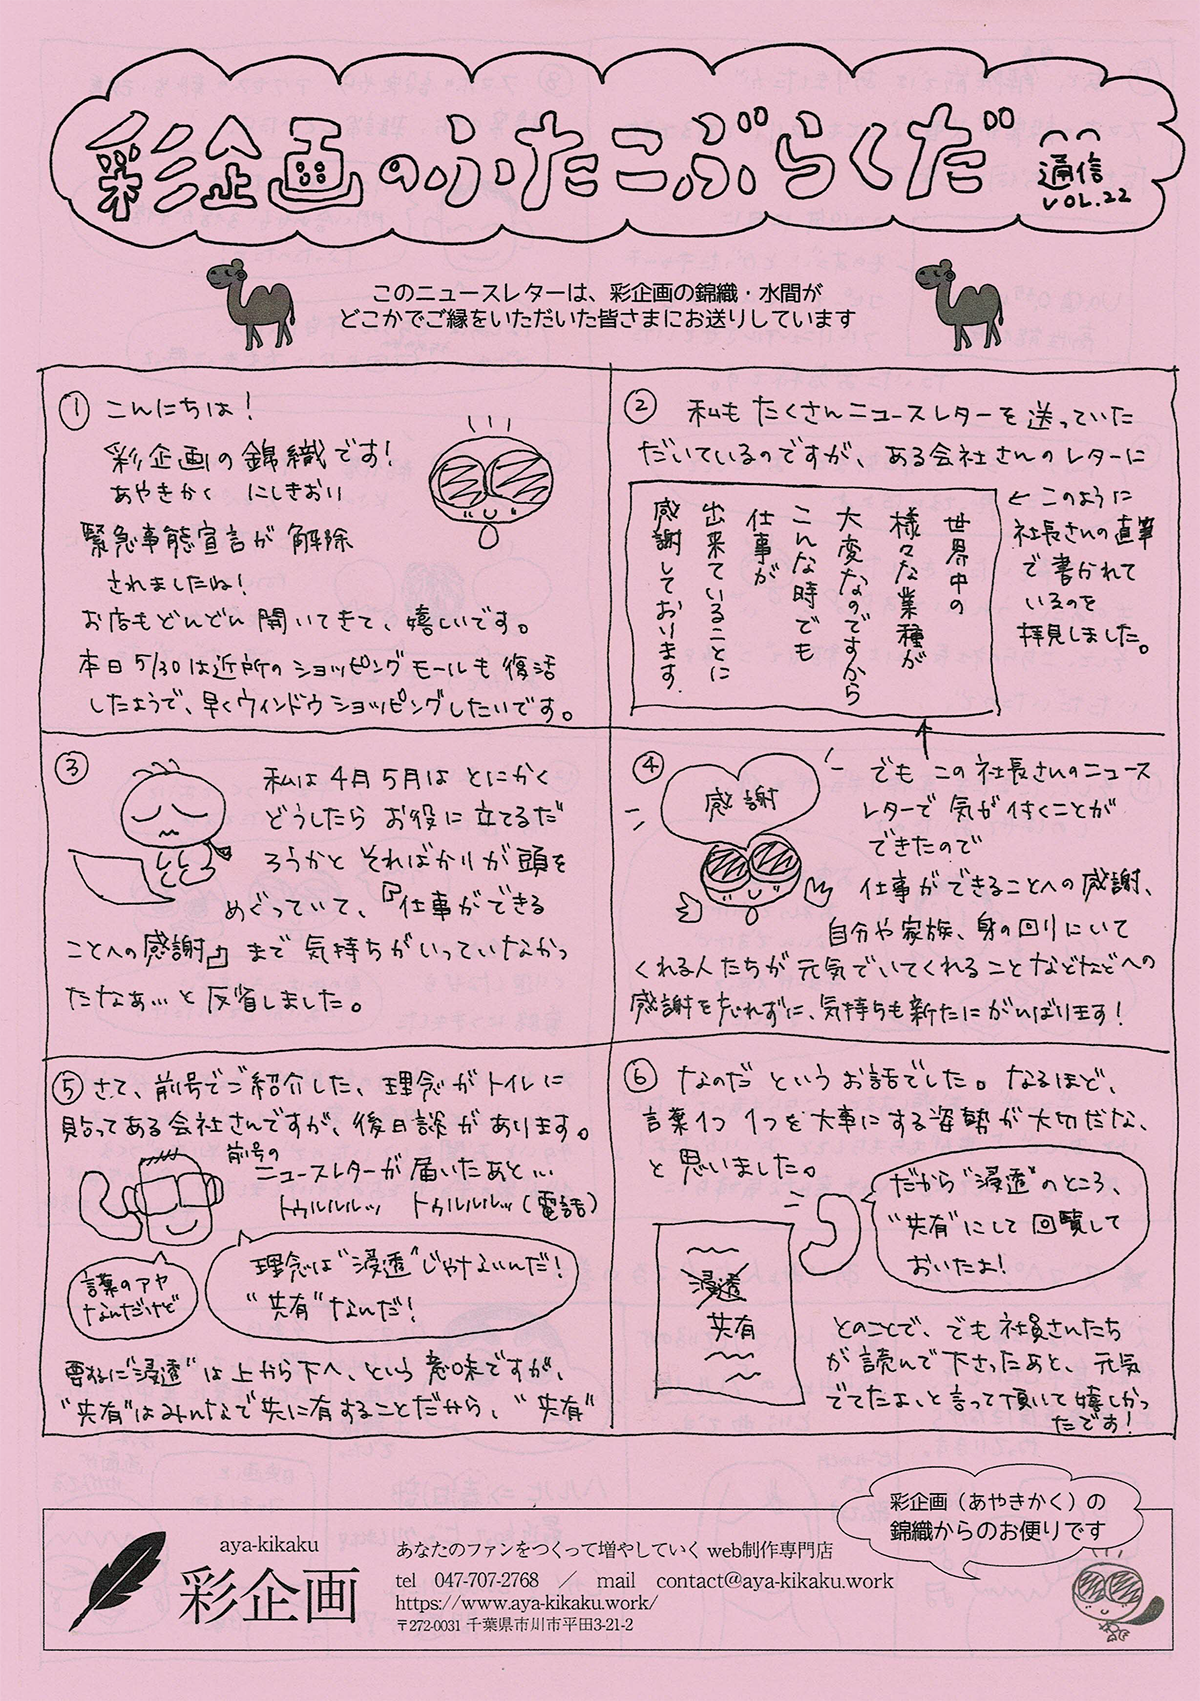 彩企画のふたこぶらくだ 通信
VOL.22
このニュースレターは、彩企画の錦織・水間が
どこかでご縁をいただいた皆さまにお送りしています
① こんにちは！
彩企画の錦織です！
あやきかく にしきおり
緊急事態宣言が解除
されましたね！
お店もどんどん開いてきて、嬉しいです。
本日5/30は近所のショッピングモールも復活
したようで、早くウィンドウショッピングしたいです。
② 私もたくさんニュースレターを送っていた
だいているのですが、ある会社さんのレターに
世界中の
様々な業種が
大変なのですから
こんな時でも
仕事が
出来ていることに
感謝しております。
←このように
社長さんの直筆
で書かれて
いるのを
拝見しました。
③ 私は4月5月はとにかく
どうしたらお役に立てるだ
ろうかとそればかりが頭を
めぐっていて、『仕事ができる
ことへの感謝』まで気持ちがいっていなかっ
たなぁ…と反省しました。
④ 感謝
でもこの社長さんのニュース
レターで気が付くことが
できたので
仕事ができることへの感謝、
自分や家族、身の回りにいて
くれる人たちが元気でいてくれることなどなどへの
感謝を忘れずに、気持ちも新たにがんばります！
⑤ さて、前号でご紹介した、理念がトイレに
貼ってある会社さんですが、後日談があります。
前号の
ニュースレターが届いたあと…
トゥルルルッ トゥルルルッ（電話）
理念は"浸透"じゃないんだ！
"共有"なんだ！
言葉のアヤ
なんだけど
要するに"浸透"は上から下へ、という意味ですが、
"共有"はみんなで共に有することだから、"共有"
⑥ なのだというお話でした。なるほど、
言葉1つ1つを大事にする姿勢が大切だな、
と思いました。
だから"浸透"のところ、
"共有"にして回覧して
おいたよ！
浸透
共有
とのことで、でも社員さんたち
が読んで下さったあと、元気
でてたよ、と言って頂いて嬉しかっ
たです！
彩企画（あやきかく）の
錦織からのお便りです
aya-kikaku
彩企画
あなたのファンをつくって増やしていくweb制作専門店
tel 047-707-2768 ／ mail contact@aya-kikaku.work
https://www.aya-kikaku.work/
〒272-0031 千葉県市川市平田3-21-2